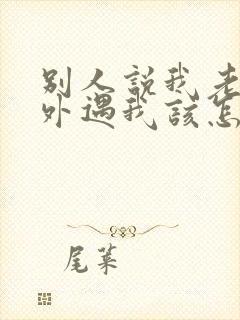 别人説我老
外遇我該怎
尾菜